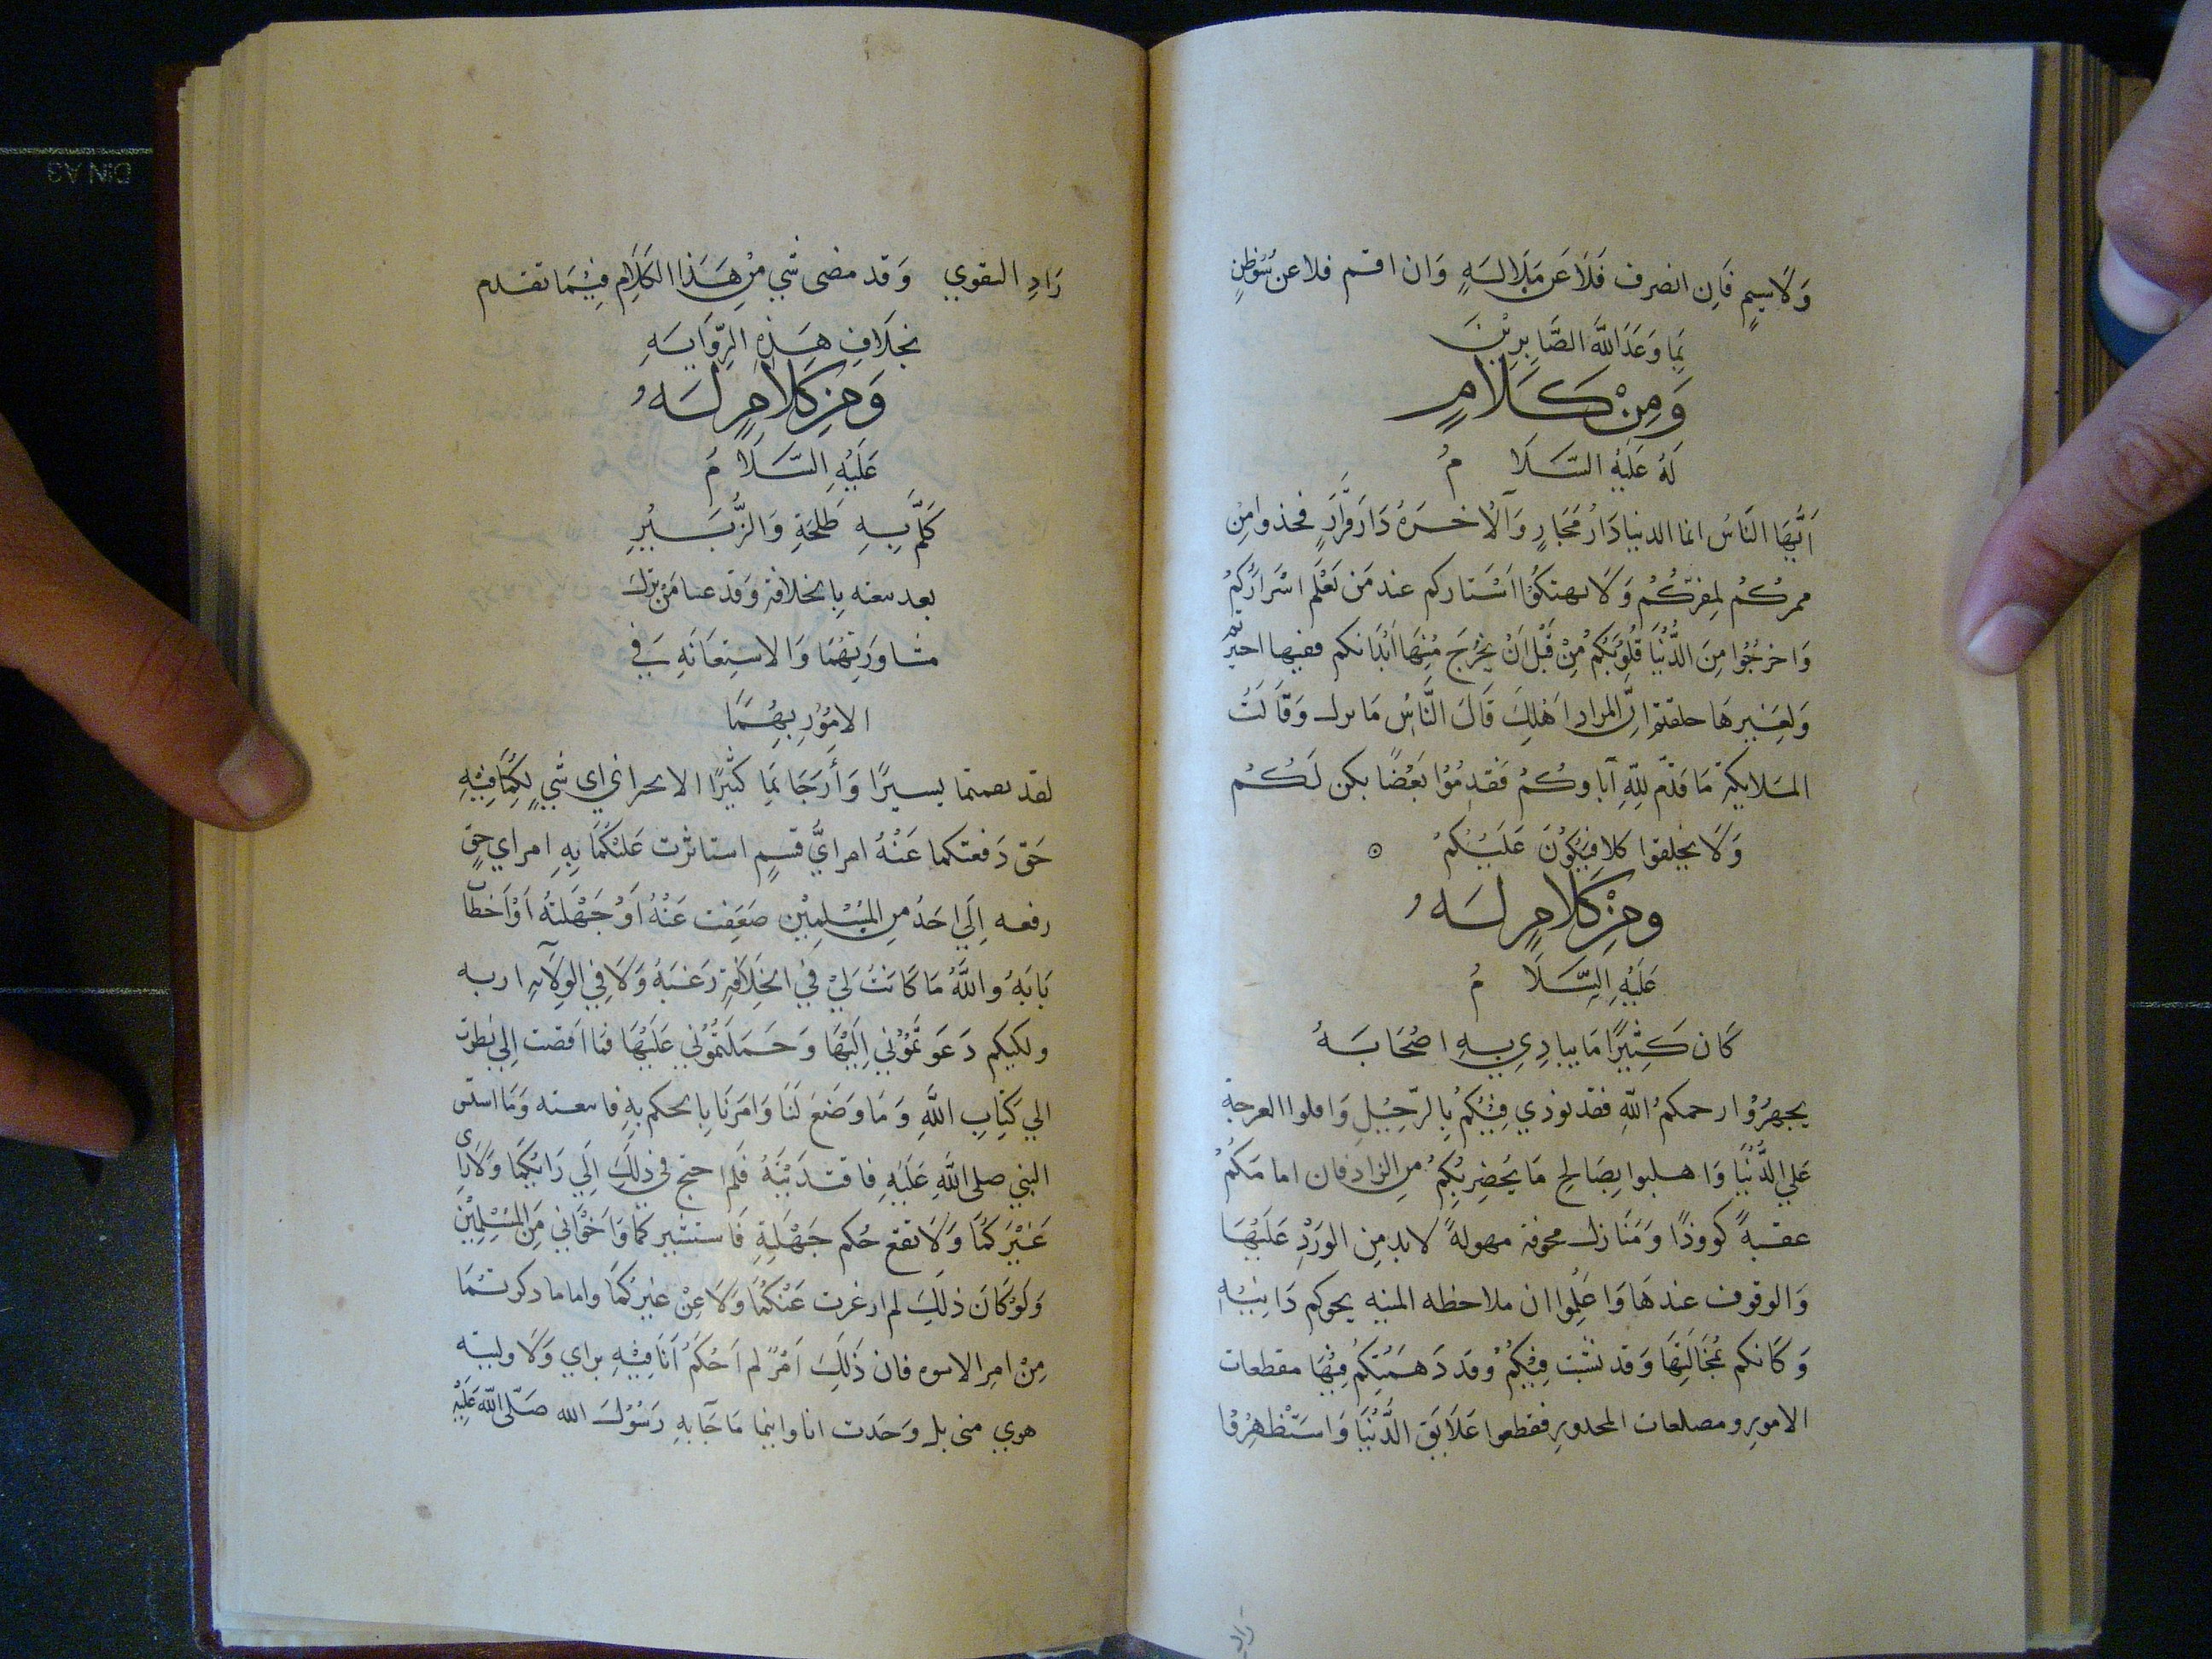 وَلَا سِيمٍ فَاِن انصرف فَلَا عَن مَلَالَهٍ وَان اقم فلا عن سُوْظنٍ
بَمِا وَعَدَ اللّهَ الصَّابِرِيْنَ
وَمِنْ كَلَامٍ
لَهُ عَلَيْهِ السَّلَامُ
اَيُّهَا النَّاسُ انما الدنيا دَارُ مَجَارٍ وَاَلْاخرَهُ دَارَ قَرَارٍ فخذوا مِنْ
ممركُم لِمقرّكُمْ وَلَا تهتكُوْا اسْتَاركم عند مَن يَعْلَم اسْرَارَكُمْ
وَاخرجُوْا مِنَ الدُّنْيَا قلُوبَكُمْ مِنْ قَبْل اَنْ يخْرَج مِنْهَا اَبْدَانكم ففيها اختبرتم
وَلِغَيرهَا خلقتم اِنَّ المراد اهْلِكَ قَالَ النَّاسُ مَا ترك وَقَالَتُ
الملايكة مَا قَدَّم لِلّهِ آباوكُمْ فَقدِمُوْا بَعْضًا يكن لَكُمْ
وَلَا تخلفوا كلا فَيَكُوْنَ عَلَيْكُمْ ⊙
ومِنْ كَلَامٍ لَهُ
عَلَيْهِ السَّلَامُ
كَان كَثِيْرًا مَا يبادِي بِهِ اصْحَابَهُ
تجهزُوْا رحمكمُ اللّهِ فقد نودي فِيْكُمْ بِالرّحِيْلِ وَاقلوا العرجة
عَلي الدُّنْيَا وَاهلبوا بِصَالِحِ مَا يَحْضِركُمْ مِن الزاد فان اما مَكُمُ
عقبةً كوودًا وَمَنَازل مخوفة مهولةً لا بد مِن الوَرَدِ عَلَيْهَا
وَالوقوف عندهَا وَاعْلَموا ان ملاحظه المنيه نحوكم دَانِيْهِ
وَكَانكم بمَخَالِبَهَا وَقد نشبت فِيْكُمْ وقد دَهَمَتْكُم فِيْهَا مقطعات
الامورِ ومصلعات المحدورِ فقطعوا عَلَايَق الدُّنْيَا وَاسْتَظهِرُوْا
زاد
زَادِ التقوي وَقد مضى شي مِنْ هَذَا الكَلَامِ فِيْمَا تقدم
بخلَافِ هَذِهِ الرِّوَايَهِ
وَمِنْ كَلَامٍ لَهُ
عَلَيْهِ السَّلَامُ
كَلَّمَ بِهِ طَلحَةِ وَالزُّبَيْرِ
بعد بيعته بِالخلافة وَقد عتبا مَنْ ترك
مشاورَتِهُمَا وَالاسْتِعَانَهِ فِي
الامُوْرِ بِهِمَا
لقد نقمتما يسيرًا وَأَرجَاتمَا كثيْرًا الا تخبراني اي شَيٍ لَكُمَا فِيْهِ
حَق دَفعتكما عَنْهُ ام ايُّ قسمٍ استاثرت عَلَيْكمَا بِهِ ام اي حقٍ
رفعه اِلَي احَدُ مِن المُسْلِمِيْن ضعَفت عَنْهُ اَوْ جَهلتُهُ اَوْ اَخْطَات
بَابَهُ وَاللَّهُ مَا كَانَتُ لِيْ فِي الْخِلَافَةِ رَغبَهُ وَلَا فِي الوِلَايهِ اربه
ولكنكم دَعَوتُمُوْنِي اِلَيْهَا وَحَمَلتُمُوْنِي عَلَيْهَا فما افضت اِلي نظرت
الي كَتَابِ اللَّهِ وَمَا وَضَعَ لَنَا وَامَرَنَا بِالحكم بِهِ فاتبعته وَمَا استن
النبي صلى اللَّهِ عَلَيْهِ فاقتدَيْتَهُ فَلَم احتج فِي ذلِكَ اِلَي رَايكُمَا وَلَا رَاي
غَيْرَكمَا وَلَا تقع حُكم جَهلتِهِ فَاستشيركما وَاخْوَاني مِنَ المُسْلِمِيْن
وَلَوْ كَانَ ذلِكَ لم ارغرت عَنْكُمَا وَلَا عِنْ غيركُمَا واما ما ذكرتمَا
مِنْ امرِ الاسوه فان ذَلِكَ اَمْرٌ لم اَحْكُمُ اَنَا فِيْهِ براي وَلَا وليته
هوي مني بل وَجَدت انا وانتما مَا جَآ بهِ رَسُوْلُ الله صَلّى اللّه عَلَيْهِ